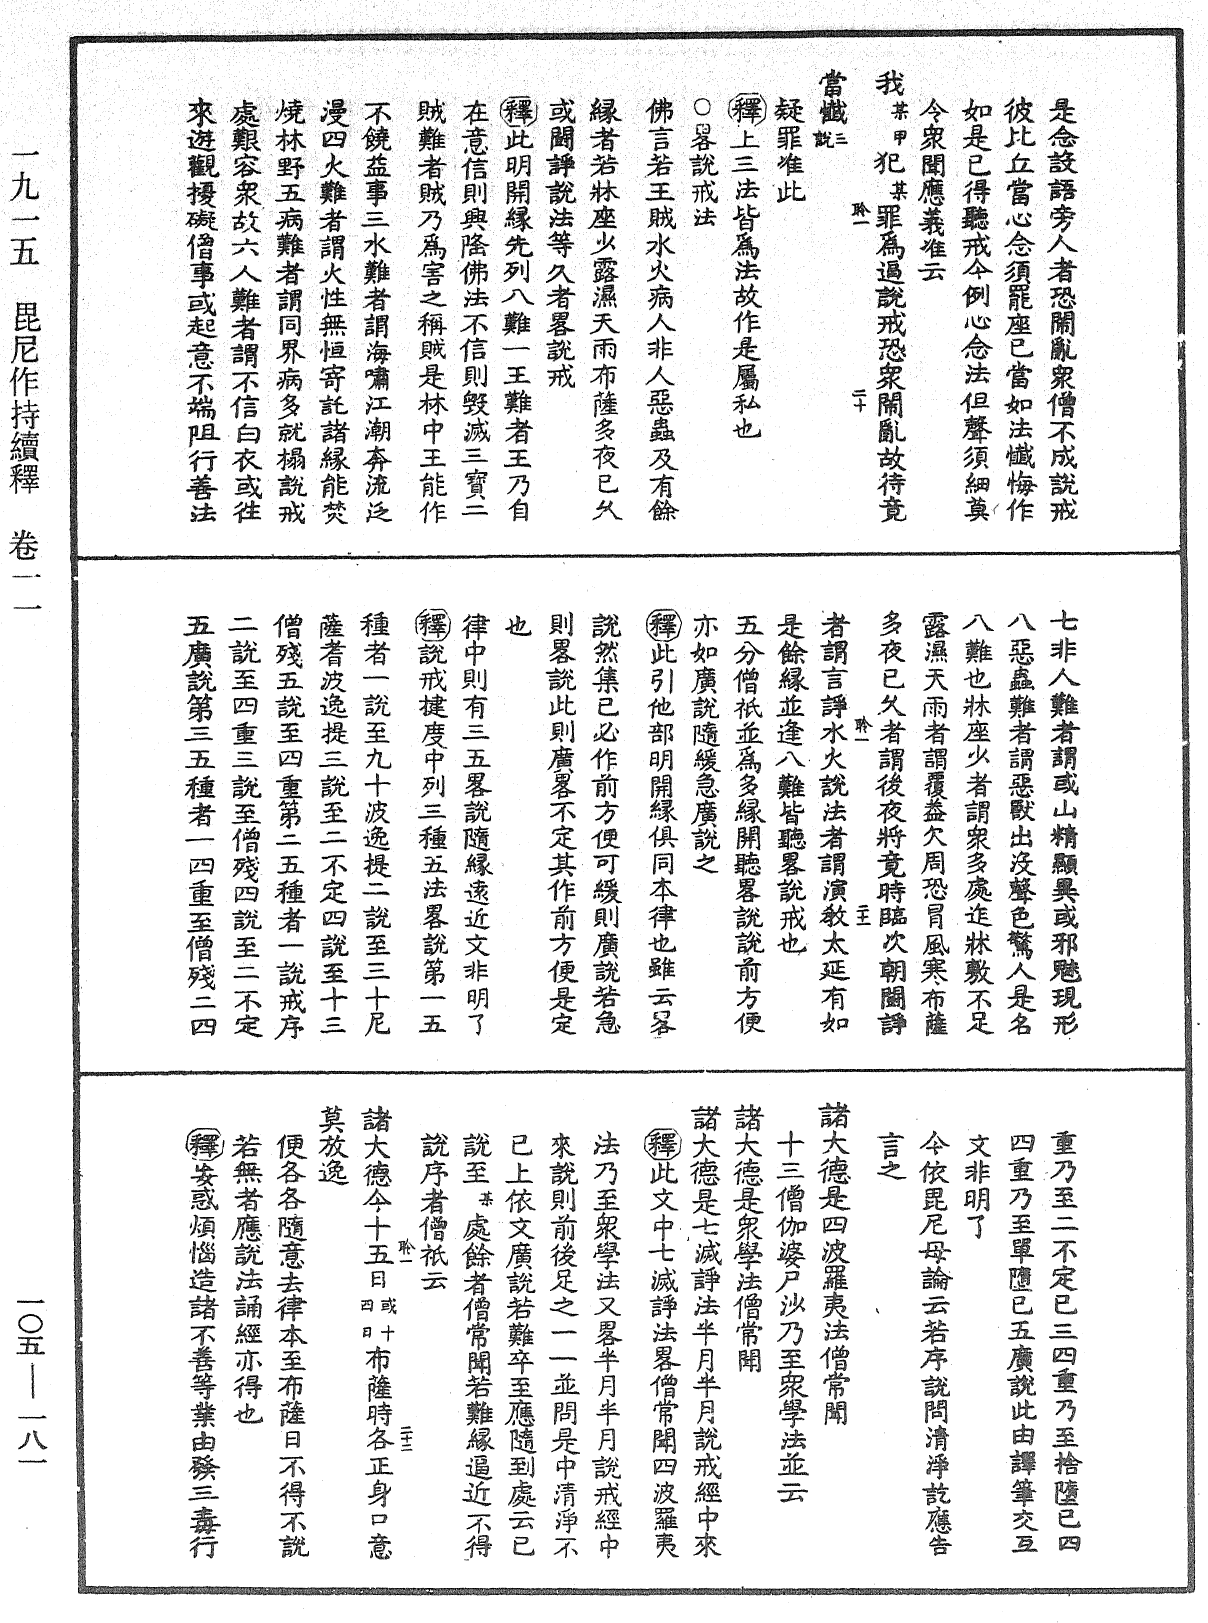 是念設語旁人者恐鬧亂衆僧不成說戒
彼比丘當心念須罷座已當如法懺悔作
如是已得聽戒今例心念法但聲須細莫
令衆聞應義准云
我某甲犯某罪爲逼說戒恐衆鬧亂故待竟
聆一
二十
當懺三說
疑罪准此
釋上三法皆爲法故作是屬私也
○畧說戒法
佛言若王賊水火病人非人惡蟲及有餘
緣者若牀座少露濕天雨布薩多夜已久
或鬭諍說法等久者畧說戒
釋此明開緣先列八難一王難者王乃自
在意信則興隆佛法不信則毀滅三寶二
賊難者賊乃爲害之稱賊是林中王能作
不饒益事三水難者謂海嘯江潮奔流泛
漫四火難者謂火性無恒寄託諸緣能焚
燒林野五病難者謂同界病多就榻說戒
處艱容衆故六人難者謂不信白衣或往
來遊觀擾礙僧事或起意不端阻行善法
七非人難者謂或山精顯異或邪魅現形
八惡蟲難者謂惡獸出沒聲色驚人是名
八難也牀座少者謂衆多處迮牀敷不足
露濕天雨者謂覆蓋欠周恐冒風寒布薩
多夜已久者謂後夜將竟時臨次朝鬭諍
聆一
二十一
者謂言諍水火說法者謂演教太延有如
是餘緣並逢八難皆聽畧說戒也
五分僧祇並爲多緣開聽畧說說前方便
亦如廣說隨緩急廣說之
釋此引他部明開緣俱同本律也雖云畧
說然集已必作前方便可緩則廣說若急
則畧說此則廣畧不定其作前方便是定
也
律中則有三五畧說隨緣遠近文非明了
釋說戒揵度中列三種五法畧說第一五
種者一說至九十波逸提二說至三十尼
薩耆波逸提三說至二不定四說至十三
僧殘五說至四重第二五種者一說戒序
二說至四重三說至僧殘四說至二不定
五廣說第三五種者一四重至僧殘二四
重乃至二不定已三四重乃至捨墮已四
四重乃至單墮已五廣說此由譯筆交互
文非明了
今依毘尼母論云若序說問清淨訖應告
言之
諸大德是四波羅夷法僧常聞
十三僧伽婆尸沙乃至衆學法並云
諸大德是衆學法僧常聞
諸大德是七滅諍法半月半月說戒經中來
釋此文中七滅諍法畧僧常聞四波羅夷
法乃至衆學法又畧半月半月說戒經中
來說則前後足之一一並問是中清淨不
已上依文廣說若難卒至應隨到處云已
說至某處餘者僧常聞若難緣逼近不得
說序者僧祇云
聆一
二十二
諸大德今十五日或十四日布薩時各正身口意
莫放逸
便各各隨意去律本至布薩日不得不說
若無者應說法誦經亦得也
釋妄惑煩惱造諸不善等業由發三毒行
一九一五　毘尼作持續釋　卷一一
一〇五—一八一